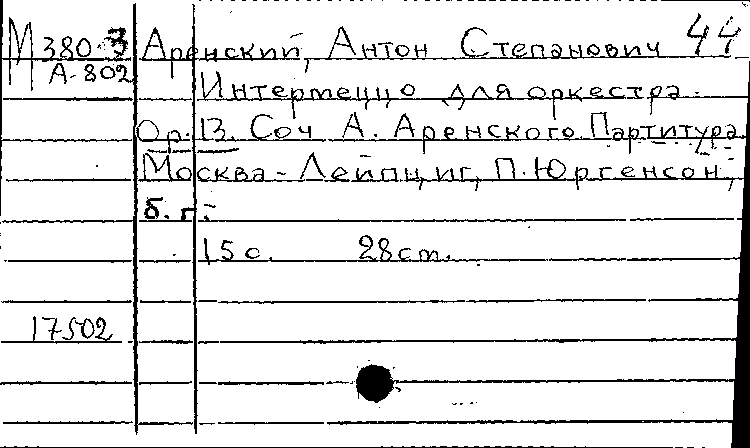 М 380-3 Аренский, Антон Степанович 44
А-802
Интермеццо для оркестра.
Ор. 13. Соч А. Аренского. Партитура.
Москва - Лейпциг, П. Юргенсон,
б. г.
15 с. 28 cm.
17502